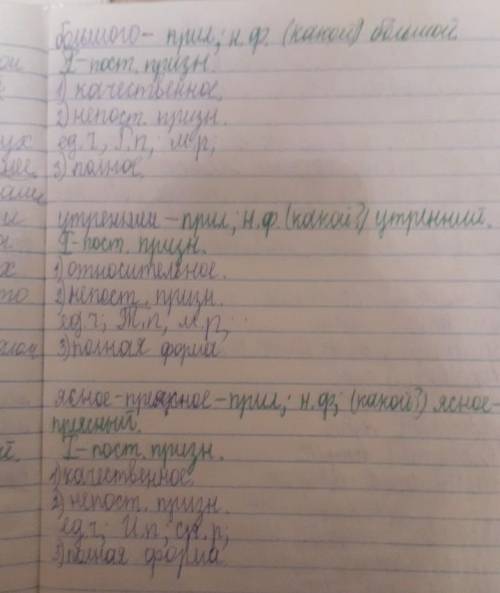 большого - прил; н.ф. (какой?) большой.
I-пост. призн.
1) качественное.
2) непост. призн.
ед.ч; Р.п; м.р;
3) полное.
утренним - прил; н.ф. (какой?) утренний.
I-пост. призн.
1) относительное.
2) непост. призн.
ед.ч; Т.п; м.р;
3) полная форма
ясное-преясное - прил; н.ф; (какой?) ясное-
преясный.
I-пост. призн.
1) качественное.
2) непост. призн.
ед.ч; И.п; ср.р;
3) полная форма